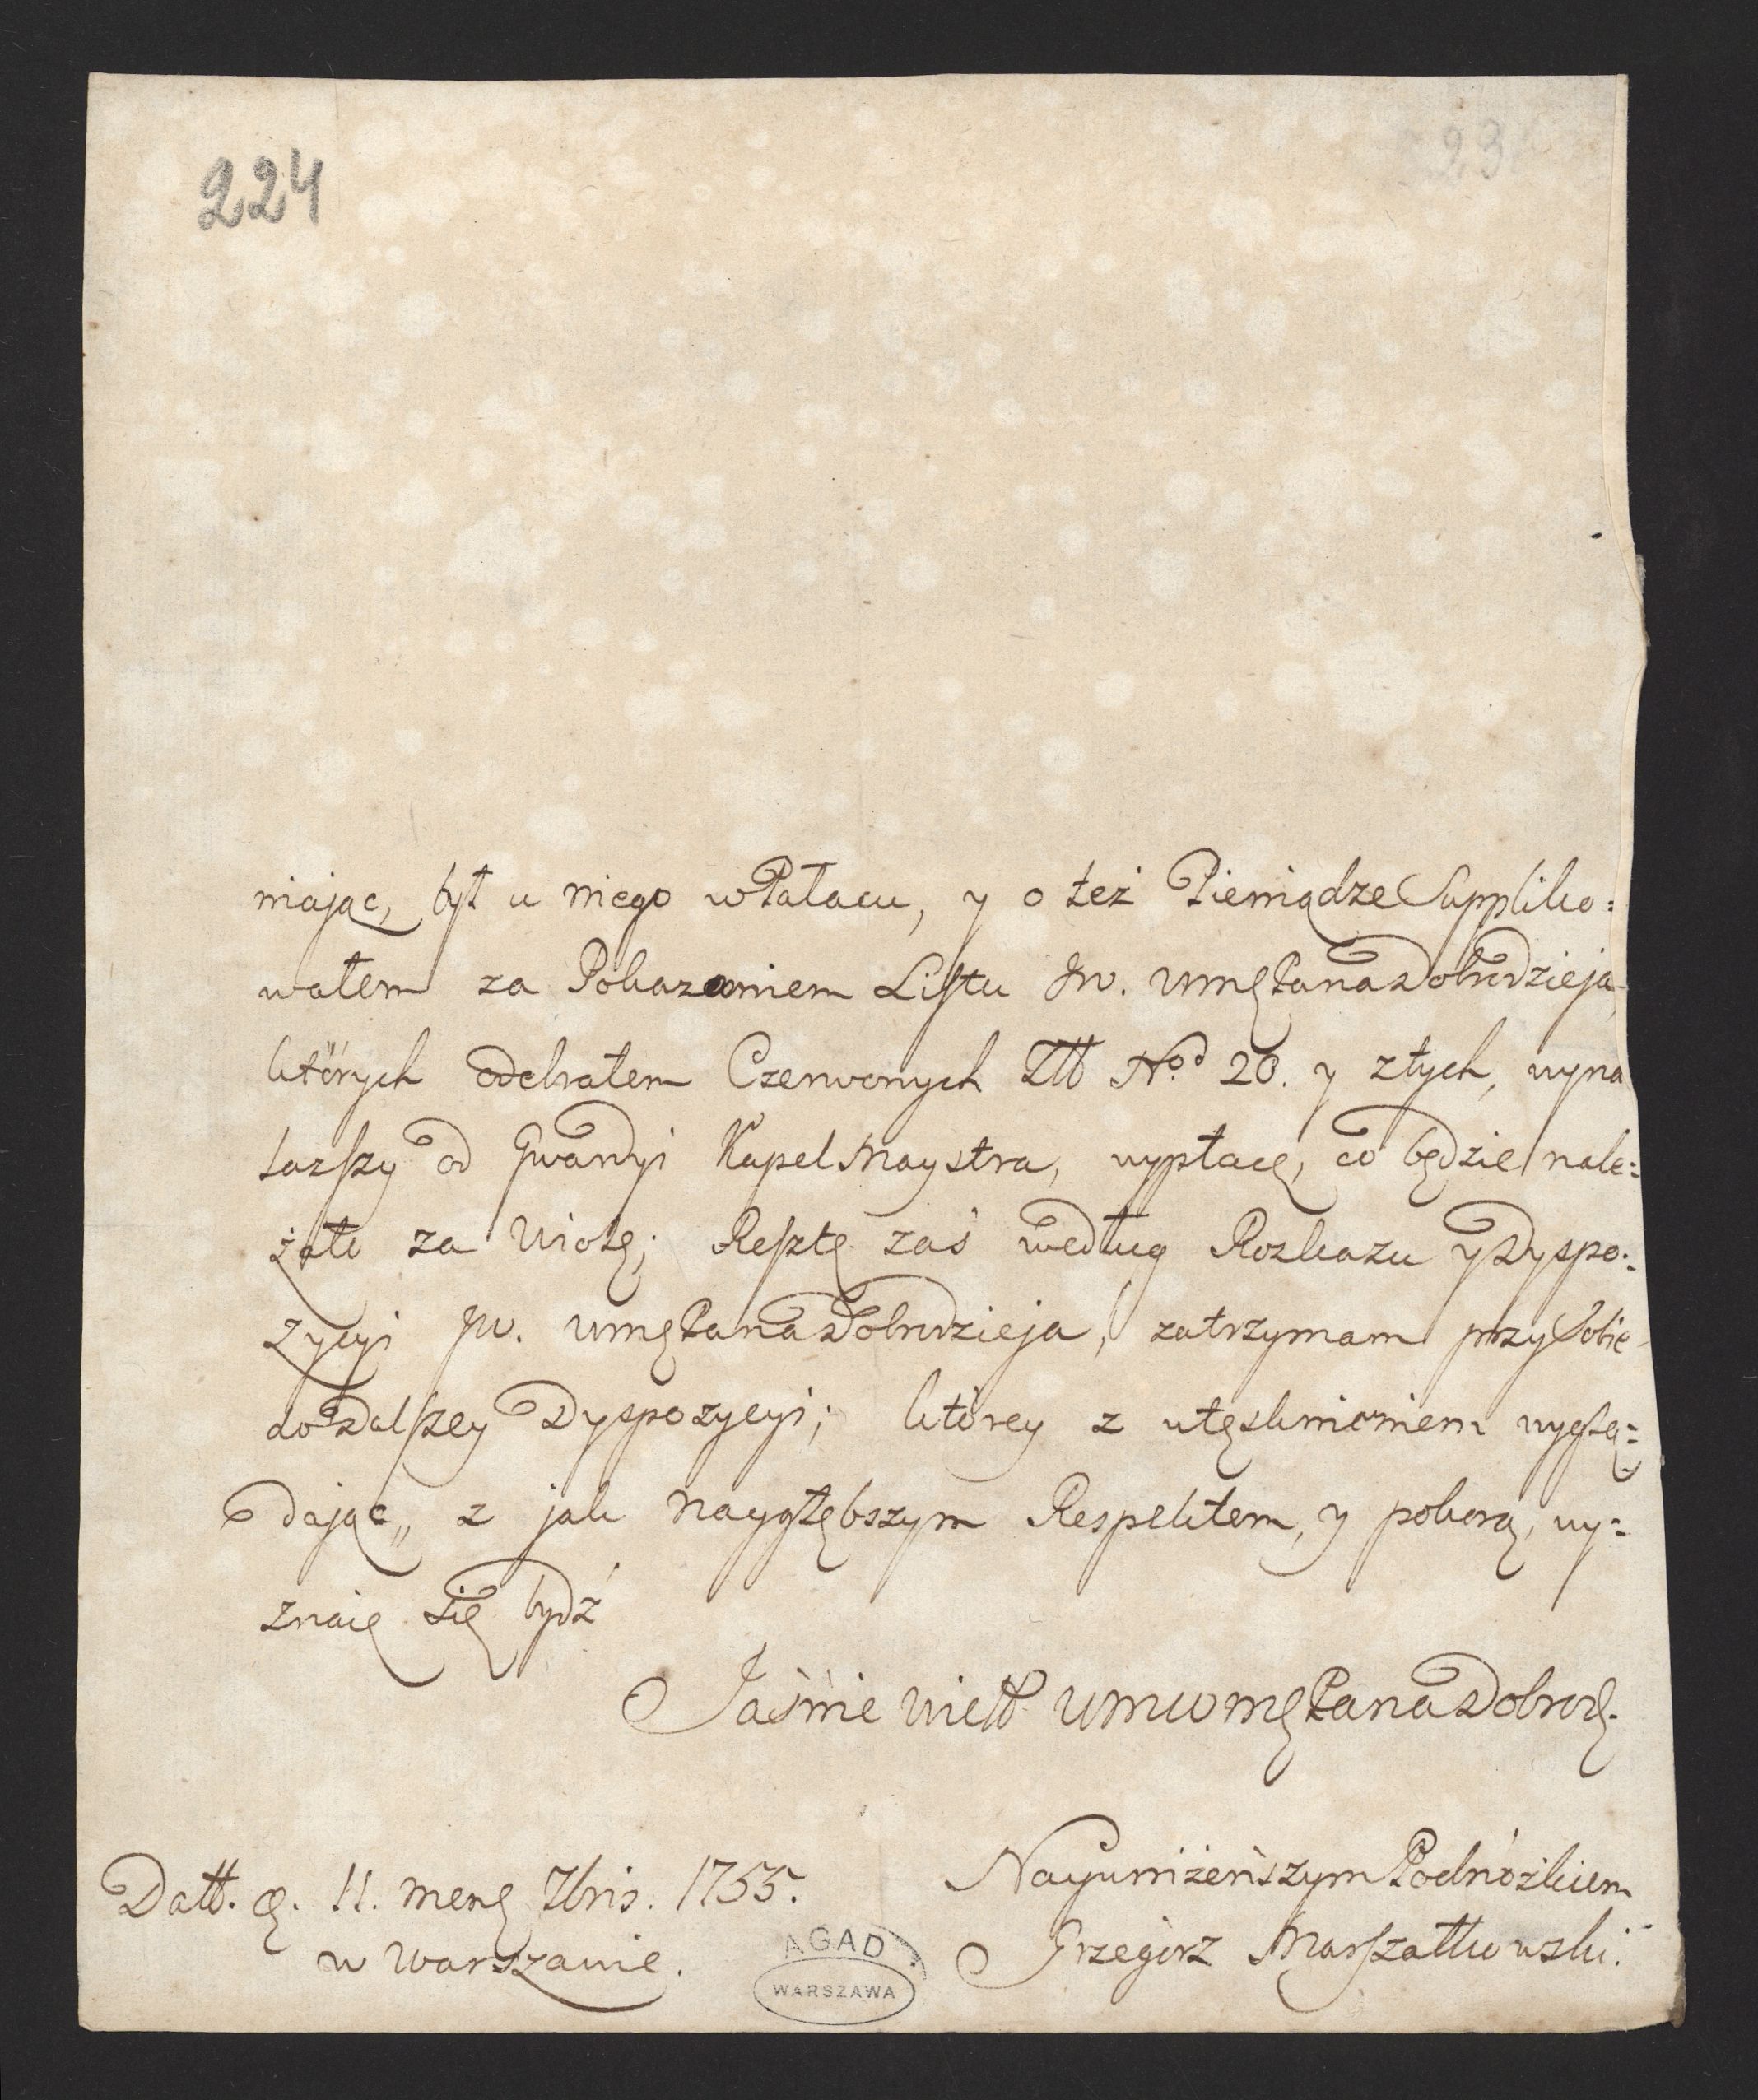 224
23
niając, był u niego w Pałacu, y o też Pieniądze Suppliko:
wałem za Pokazaniem Listu Jw. Wmę Pana Dobrodzieja,
których odebrałem Czerwonych Złł No. 20. y z tych, wyna
lazszy od Gwardyi KapelMaystra, wypłacę, co będzie nale:
żało za Wiolę; Resztę zaś według Rozkazu y Dyspo:
zycyi Jw. Wmę Pana Dobrodzieja, zatrzymam przy Sobie
do Dalszey Dyspozycyi; którey z utęsknieniem wyglą:
dając,, z jak naygłębszym Respektem, y pokorą, wy:
znaię się bydź
Jaśnie Wiell. Wmwmę Pana Dobrodz.
Datt. d. 11. mens 7bris. 1755.
w Warszawie.
Nayuniżeńszym Podnóżkiem
Grzegórz Marszałkowski.
AGAD
WARSZAWA